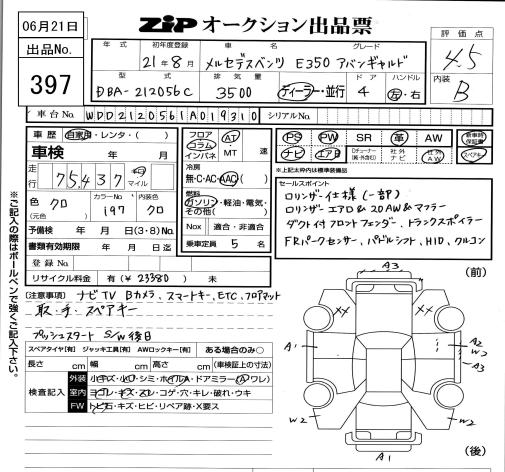 06月21日
ZIP オークション出品票
出品No.
397
年式 初年度登録 車名 グレード
21年8月 メルセデスベンツ E350 アバンギャルド
型式 排気量 ドア ハンドル
DBA-212056C 3500 ディーラー・並行 4 左・右
評価点
4.5
内装
B
車台No. WDD2120561A019310 シリアルNo.
車歴 自家用・レンタ・( )
車検 年 月
走行 75,437 km マイル
色 クロ (元色) カラーNo. 197 内装色 クロ
予備検 年 月 (3・8)No.
書類有効期限 年 月 日
登録No.
リサイクル料金 有(¥23380) 未
フロア コラム インパネ AT・MT 速
冷房 無・C・AC・AAC
燃料 ガソリン・軽油・電気・その他( )
Nox 適合・非適合
乗車定員 5 名
PS PW SR 革 AW 新車時保証書
ナビ エアB 社外ナビ 社外AW スペアキー
※上記太枠内は標準装備品
セールスポイント
ロリンザー仕様(一部)
ロリンザーエアロ&20AW&マフラー
ダクト付フロントフェンダー、トランクスポイラー
FRパークセンサー、パドルシフト、HID、クルコン
[注意事項] ナビTV Bカメラ、スマートキー、ETC、フロアマット
取・手・スペアキー
プッシュスタート S/W後日
スペアタイヤ[有] ジャッキ工具[有] AWロックキー[有] ある場合のみ○
長さ cm 幅 cm 高さ cm (車検証上の寸法)
検査記入
外装 小キズ・小凹・シミ・ホイルA・ドアミラー(A ワレ)
室内 ヨゴレ・キズ・スレ・コゲ・穴・キレ・破れ・ウキ
FW トビ石・キズ・ヒビ・リペア跡・X要ス
※ご記入の際はボールペンで強くご記入下さい。
(前)
A3
XX XX
A1 A2
W2
A3
W2 W2
A1
(後)